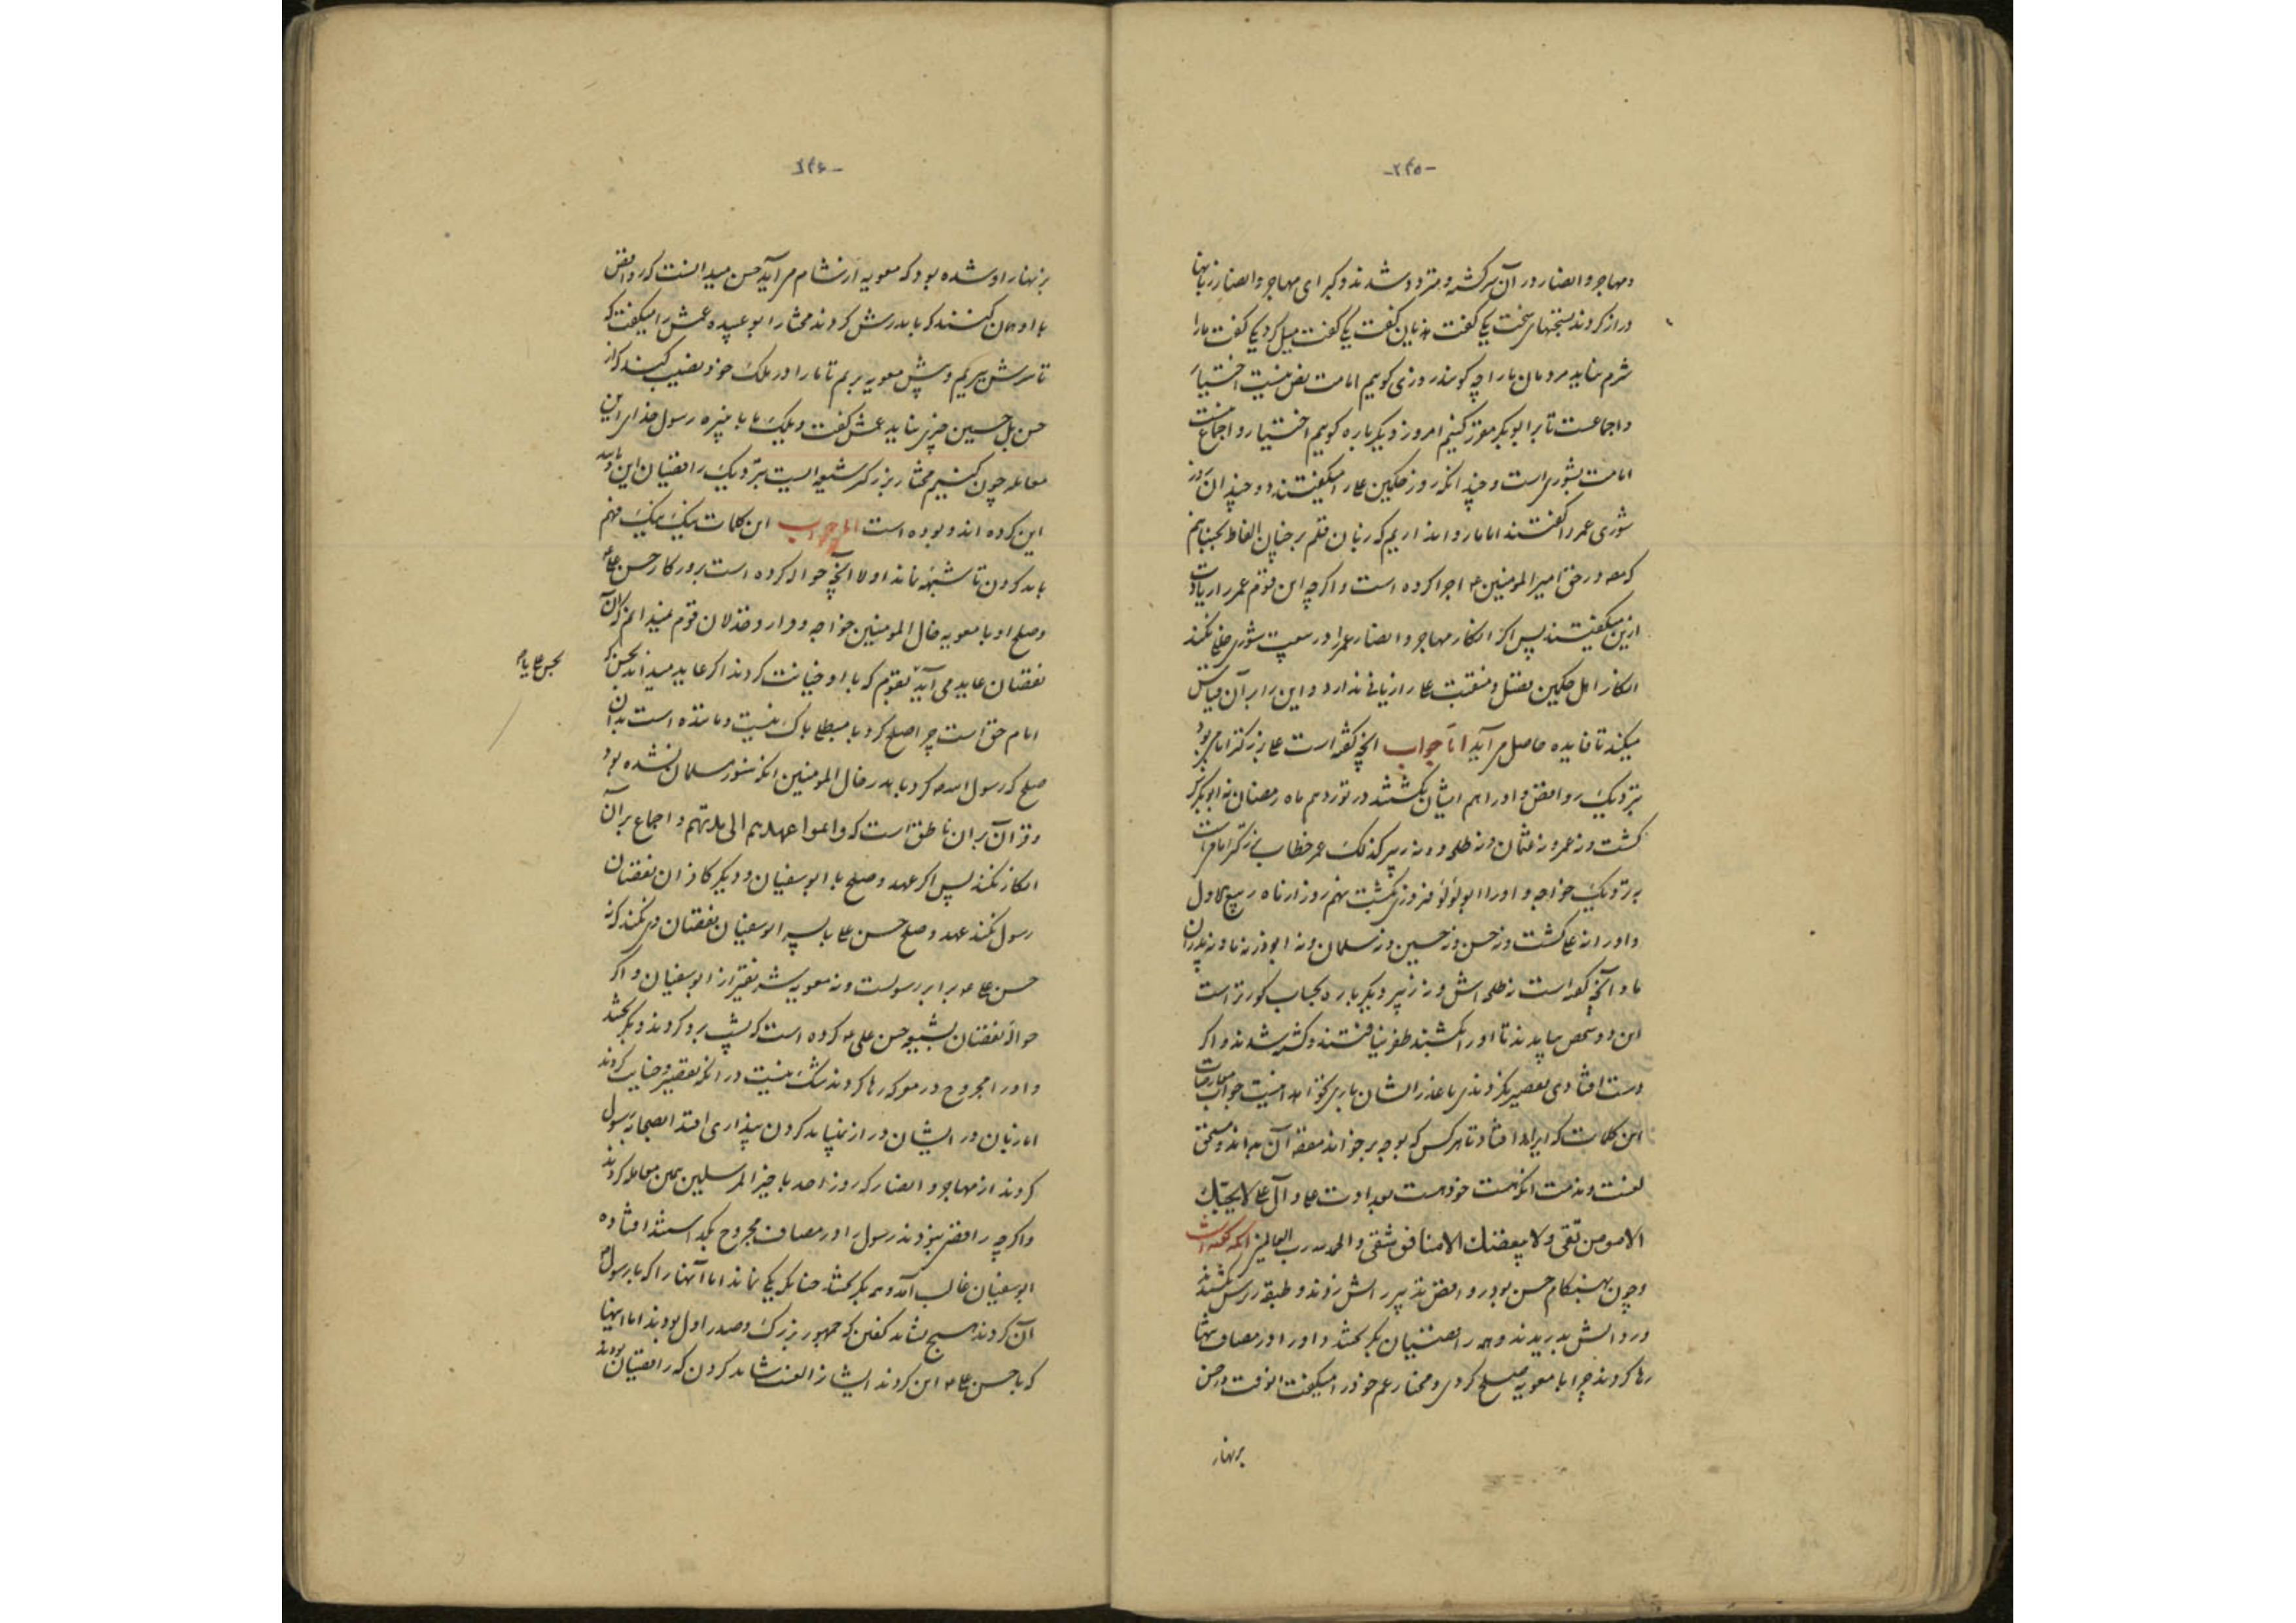 -۲۴۵-
ومهاجر وانصار در آن سرگشته و متردد شدند و کبرای مهاجر وانصار زبانها
دراز کردند بسخنهای سخت یکی کفت هذیان کفت یکی کفت میل کرد یکی کفت مارا
شرم نیاید مردمان ما را چه کویند روزی کوییم امامت نص نیست اختیار
واجماعست تا بر ابوبکر مقرر کنیم امروز دیکر باره کوییم اختیار و اجماع نیست
امامت بشوری است و چند انکه روز حکمین علی را میکفتند دو چندان روز
شوری عمر را کفتند اما ما روا نداریم که زبان قلم بر چنان الفاظ بجنبانیم
که در حق امیرالمومنین اجرا کرده است واکرچه این قوم عمر را زیادت
ازین میکفتند پس اکر انکار مهاجر وانصار عمر را در سبب شوری خللی نکند
انکار اهل حکمین بفضل و منقبت علی را زیانی ندارد و این را بر آن قیاس
میکند تا فایده حاصل می آید اما جواب انچه کفته است علی بزرکتر امام بود
بنزدیک روافض و او را هم ایشان بکشتند در نوزدهم ماه رمضان نه ابوبکر
کشت ونه عمر و نه عثمان ونه طلحه و نه زبیر کذلک عمر خطاب بزرکتر امام است
بنزدیک خواجه و او را ابولؤلؤ فیروز بکشت نهم روز از ماه ربیع الاول
و او را نه علی کشت ونه حسن ونه حسین ونه سلمان ونه ابوذر نه ما ونه پدران
ما و آنچه کفته است نه طلحه اش ونه زبیر دیکر باره بحساب کورتر است
این دو شخص بیامدند تا او را بکشند ظفر نیافتند و کشته شدند و اکر
دست افتادی تقصیر نکردندی با عذر ایشان باری نخواهد نیست جواب معارضات
این کلمات که ایراد افتاد تا هر کس که بوجه بر خواند معقد آن بداند و مستحق
لعنت ومذمت انکه هست خود هست بعداوت علی و آل علی لا یحبک
الا مومن تقی ولا یبغضک الا منافق شقی والحمد لله رب العالمین آنکه کفته است
وچون بهنکام حسن بود روافض تدبیر اش زدند و طبقه زرش بکشیدند
و ردااش بدریدند وهمه رافضیان بکریختند و او را در مصاف تنها
رها کردند چرا با معویه صلح کردی و مختار عم خود را میکفت انوقت که حسن
بزنهار
-۲۴۶-
بزنهار او شده بود که معویه از شام می آید حسن میدانست که روافض
با او همان کنند که با پدرش کردند مختار ابو عبیده عمش را میکفت که
تا سرش ببریم و پیش معویه بریم تا ما را در ملک خود نصیب کند که از
حسن بل حسین چیزی نیاید عمش کفت ویلک ما با نبیره رسول خدای این
معامله چون کنیم مختار بزرکتر شیعه ایست بنزدیک رافضیان این و مانند
این کرده اند و بوده است اما جواب این کلمات یک بیک فهم
باید کردن تا شبهه نماند اولا انچه حواله کرده است بر در کار حسن علی
وصلح او با معویه خال المومنین خواجه و ادار و خذلان قوم نمیدانم که آن
نقصان عاید می آید بقوم که با او خیانت کردند اکر عاید میداند بحسن که
امام حق است چرا صلح کرد با مبطلی باک نیست و مانده است بدان
صلح که رسول الله کرد با پدر خال المومنین انکه هنوز مسلمان نشده بود
وقرآن بر آن ناطق است که واتموا عهدهم الی مدتهم و اجماع بر آن
انکار نکند پس اکر عهد و صلح با ابوسفیان و دیکر کافران نقصان
رسول نکند عهد وصلح حسن علی با پسر ابوسفیان نقصان وی نکند که نه
حسن علی برابر رسولست ونه معویه بتر از ابوسفیان و اکر
حواله نقصان بشیعه حسن علی کرده است که پشت برو کردند و بکریختند
و او را مجروح در معرکه رها کردند شک نیست در انکه تقصیر و خیانت کردند
اما زبان در ایشان دراز نباید کردن پنداری اقتدا بصحابه رسول
کردند از مهاجر و انصار که روز احد با خیر المرسلین همین معامله کردند
واکرچه رافضی نبودند رسول را در مصاف مجروح بگذاشتند افتاده
ابوسفیان غالب آمد و همه بکریختند چنانکه یکی نماند اما آنها را که با رسول
آن کردند هیچ نشاید کفتن که جمهور بزرک و صدر اول بودند اما اینها
که با حسن علی این کردند ایشانرا لعنت شاید کردن که رافضیان بودند
بحسن علی باید